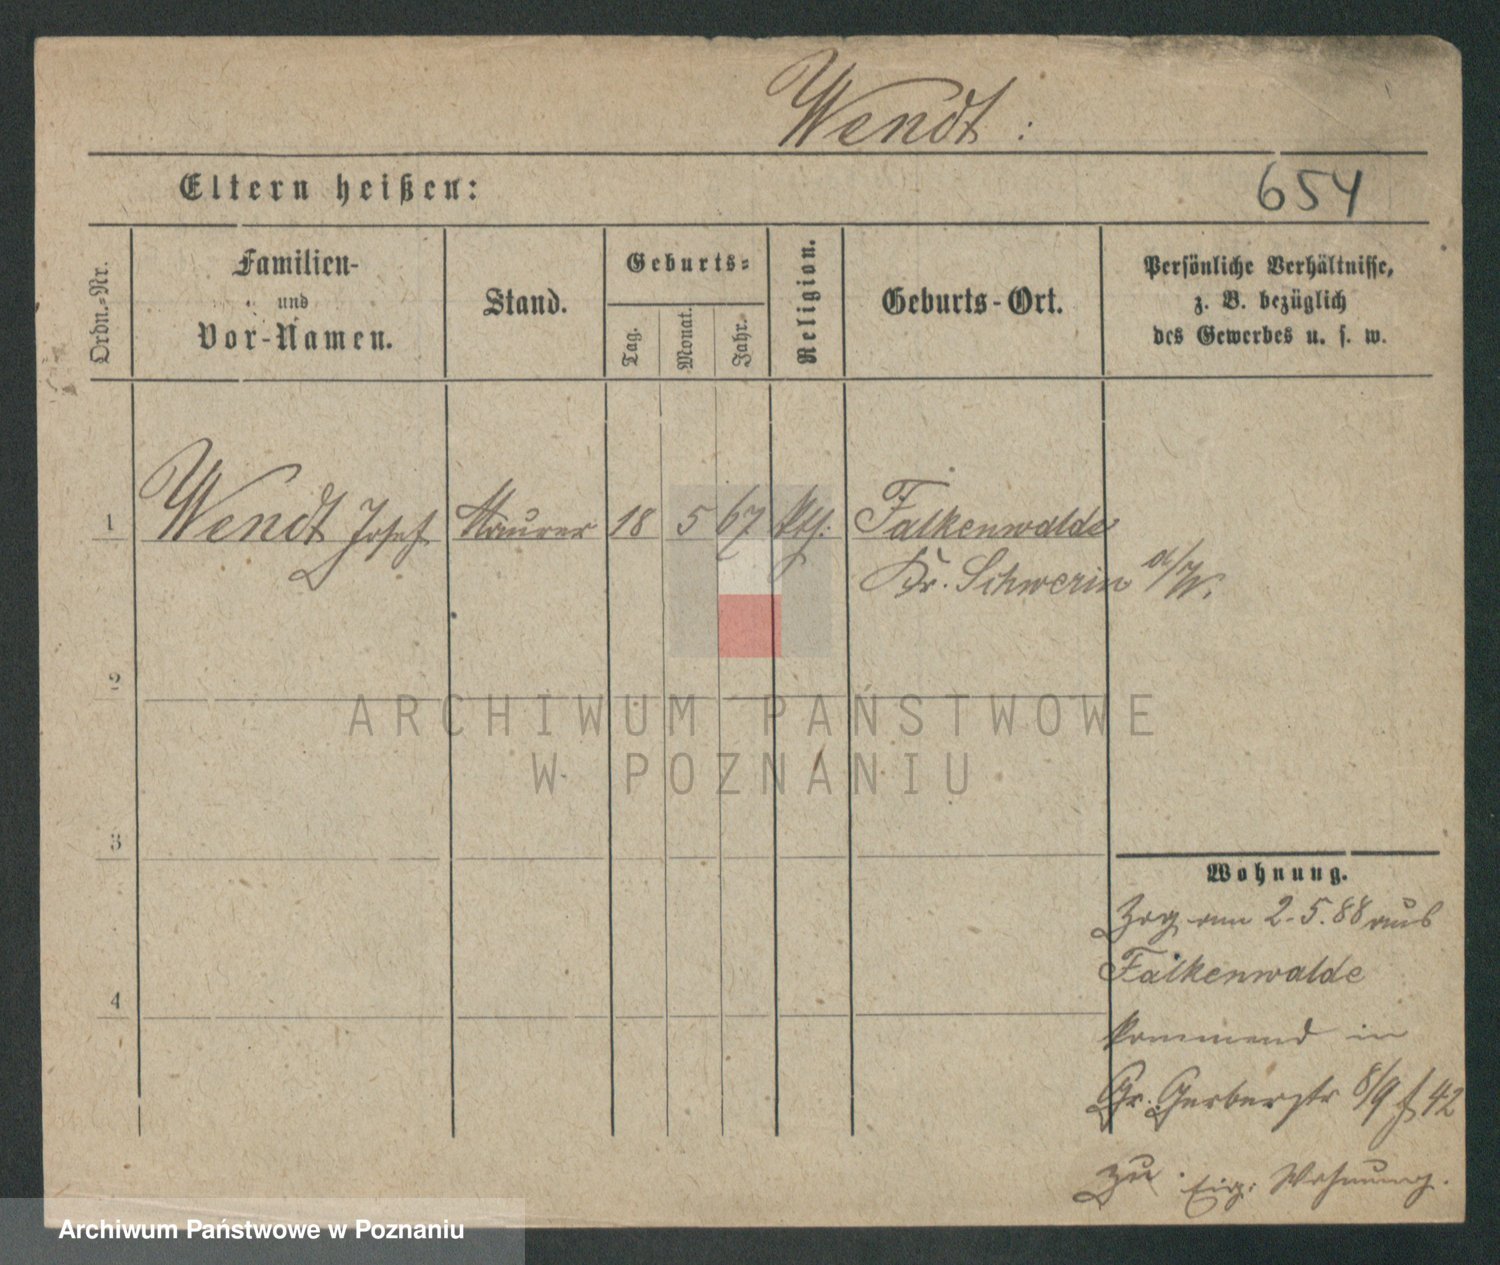 Wendt :
Eltern heißen:
654
Ordn.-Nr.
Familien-
und
Vor-Namen.
Stand.
Geburts-
Tag.
Monat.
Jahr.
Religion.
Geburts-Ort.
Persönliche Verhältnisse,
z. B. bezüglich
des Gewerbes u. s. w.
1 Wendt Josef Maurer 18 5 67 kth. Falkenwalde
Kr. Schwerin a/W.
2
3
4
Wohnung.
Zog am 2.5.88 aus
Falkenwalde
kommend in
Gr. Gerberstr 8/9 42
zu Eig. Wohnung.
ARCHIWUM PAŃSTWOWE
W POZNANIU
Archiwum Państwowe w Poznaniu